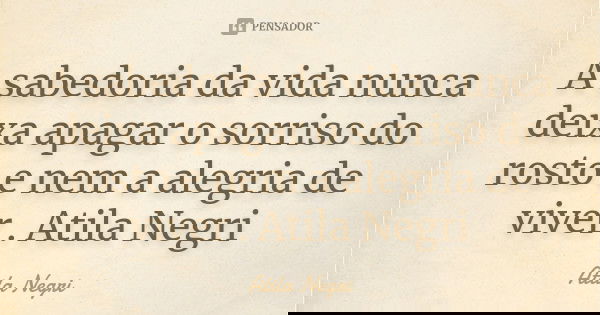 PENSADOR
A sabedoria da vida nunca
deixa apagar o sorriso do
rosto e nem a alegria de
viver . Atila Negri
Atila Negri